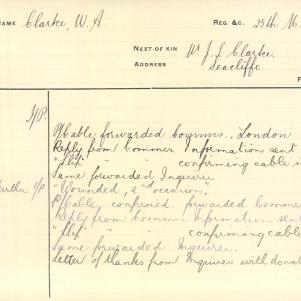 NAME Clarke, W. A REG. &C. 25th M.
NEXT OF KIN Mr J. L. Clarke,
ADDRESS Seacliffe
I/P.
P/Cable forwarded Commrs., London
Reply from Commr Information sent
" confirming cable
Same forwarded Inquirer
Further I/P "Wounded, 2nd occasion."
P/Cable, confirmed. forwarded Commr
Reply from Commr Information sent
" confirming cable
Same forwarded Inquirer.
Letter of thanks from Inquirer with donat